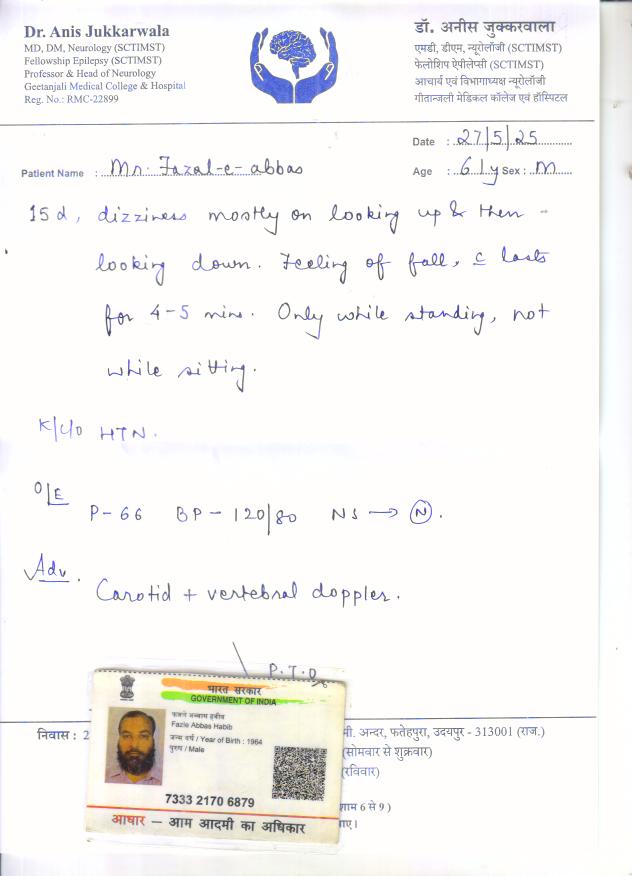 Dr. Anis Jukkarwala
MD, DM, Neurology (SCTIMST)
Fellowship Epilepsy (SCTIMST)
Professor & Head of Neurology
Geetanjali Medical College & Hospital
Reg. No.: RMC-22899
डॉ. अनीस जुक्करवाला
एमडी, डीएम, न्यूरोलॉजी (SCTIMST)
फेलोशिप ऐपीलेप्सी (SCTIMST)
आचार्य एवं विभागाध्यक्ष न्यूरोलॉजी
गीतान्जली मेडिकल कॉलेज एवं हॉस्पिटल
Date : 27/5/25
Patient Name : Mr. Fazal-e-abbas
Age : 61y Sex : M
15 d, dizziness mostly on looking up & then -
looking down. Feeling of fall, c̄ lasts
for 4-5 mins. Only while standing, not
while sitting.
K/c/o HTN.
O/E
P-66 BP-120/80 NS → Ⓝ.
Adv.
Carotid + vertebral doppler.
P.T.O
भारत सरकार
GOVERNMENT OF INDIA
फजले अब्बास हबीब
Fazle Abbas Habib
जन्म वर्ष / Year of Birth : 1964
पुरुष / Male
7333 2170 6879
आधार – आम आदमी का अधिकार
निवास : 2
मी. अन्दर, फतेहपुरा, उदयपुर - 313001 (राज.)
(सोमवार से शुक्रवार)
(रविवार)
शाम 6 से 9 )